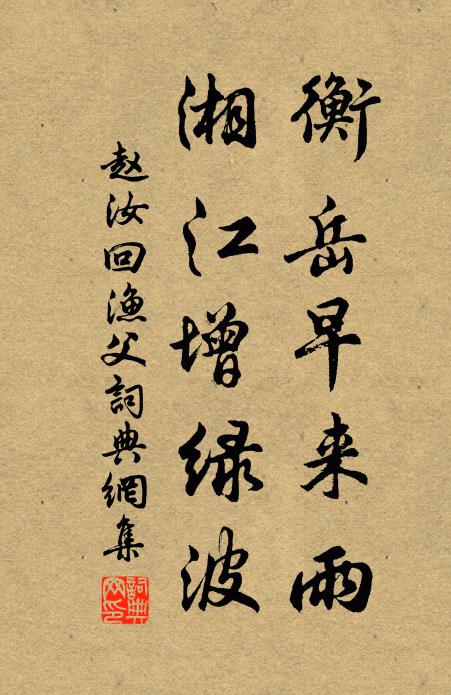 衡岳早来雨
湘江增绿波
赵汝回漁父詞典網集
詞典网印